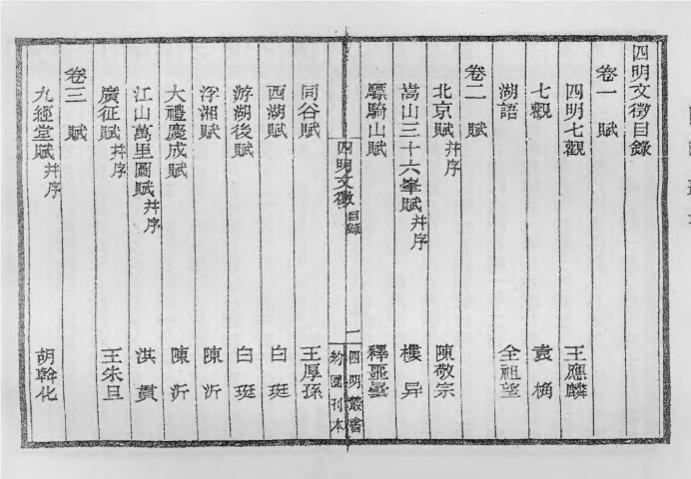 四明文徵目錄
卷一 賦
四明七觀 王應麟
七觀 袁桷
湖語 全祖望
卷二 賦
北京賦并序 陳敬宗
嵩山三十六峯賦并序 樓异
驃騎山賦 釋噩曇
四明文徵 目錄 一 四明叢書 約園刊本
同谷賦 王厚孫
西湖賦 白珽
游湖後賦 白珽
浮湘賦 陳沂
大禮慶成賦 陳沂
江山萬里圖賦并序 洪貫
廣征賦并序 王朱旦
卷三 賦
九經堂賦并序 胡幹化